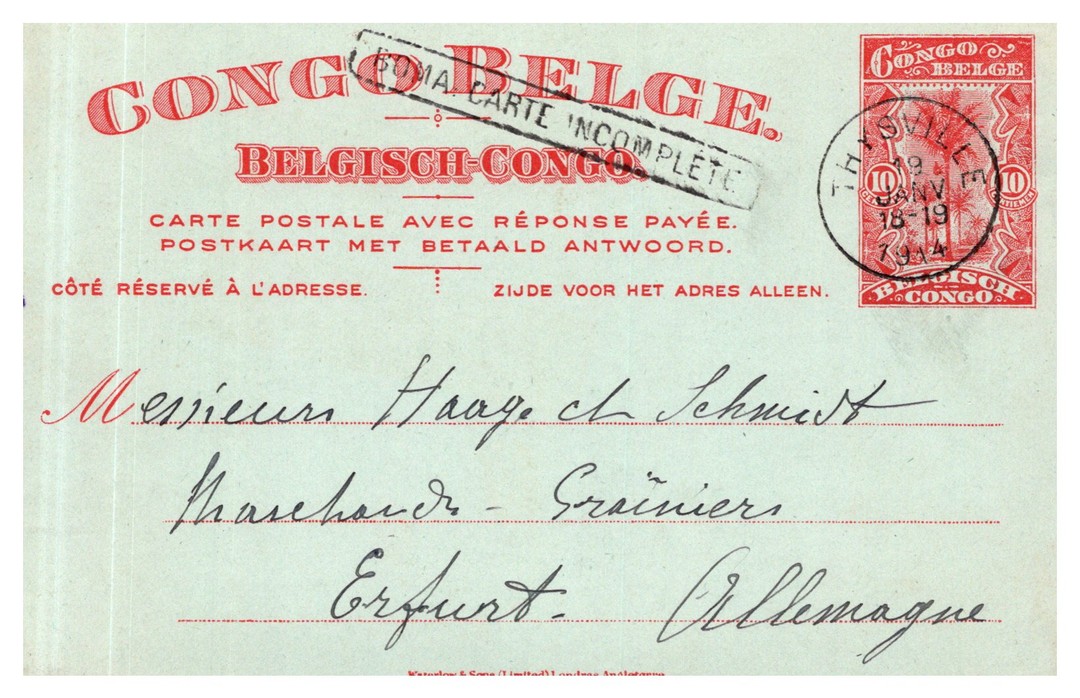 CONGO BELGE.
BELGISCH-CONGO.
BOMA. CARTE INCOMPLÈTE
CARTE POSTALE AVEC RÉPONSE PAYÉE.
POSTKAART MET BETAALD ANTWOORD.
CÔTÉ RÉSERVÉ À L'ADRESSE.
ZIJDE VOOR HET ADRES ALLEEN.
CONGO
BELGE
10 10
BELGISCH
CONGO
THYSVILLE
19
JANV
18-19
1914
Messieurs Haage et Schmidt
Marchands - Graïniers
Erfurt - Allemagne
Waterlow & Sons (Limited) Londres Angleterre